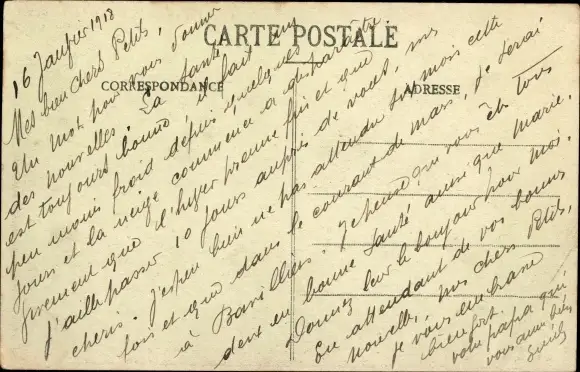 CARTE POSTALE
CORRESPONDANCE
ADRESSE
16 Janvier 1918
Mes bien chers Petits,
Un mot pour vous donner
des nouvelles. La santé
est toujours bonne, il fait un
peu moins froid depuis quelques
jours et la neige commence a disparaître
vivement que l'hiver prenne fin et que
j'aille passer 10 jours auprès de vous, mes
cheris. J'espère bien ne pas attendre six mois cette
fois et que dans le courant de mars, je serai
à Bavilliers. Je pense que vous êtes tous
deux en bonne santé ainsi que Marie.
Donnez leur le bonjour pour moi.
En attendant de vos bonnes
nouvelles, mes chers Petits,
je vous embrasse
bien fort.
votre papa qui
vous aime bien